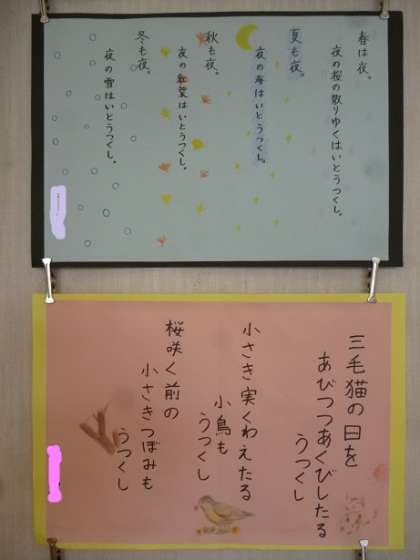 春は夜。
夜の桜の散りゆくはいとうつくし。
夏も夜。
夜の海はいとうつくし。
秋も夜。
夜の紅葉はいとうつくし。
冬も夜。
夜の雪はいとうつくし。
三毛猫の日を
あびつつあくびしたる
うつくし
小さき実くわえたる
小鳥も
うつくし
桜咲く前の
小さきつぼみも
うつくし